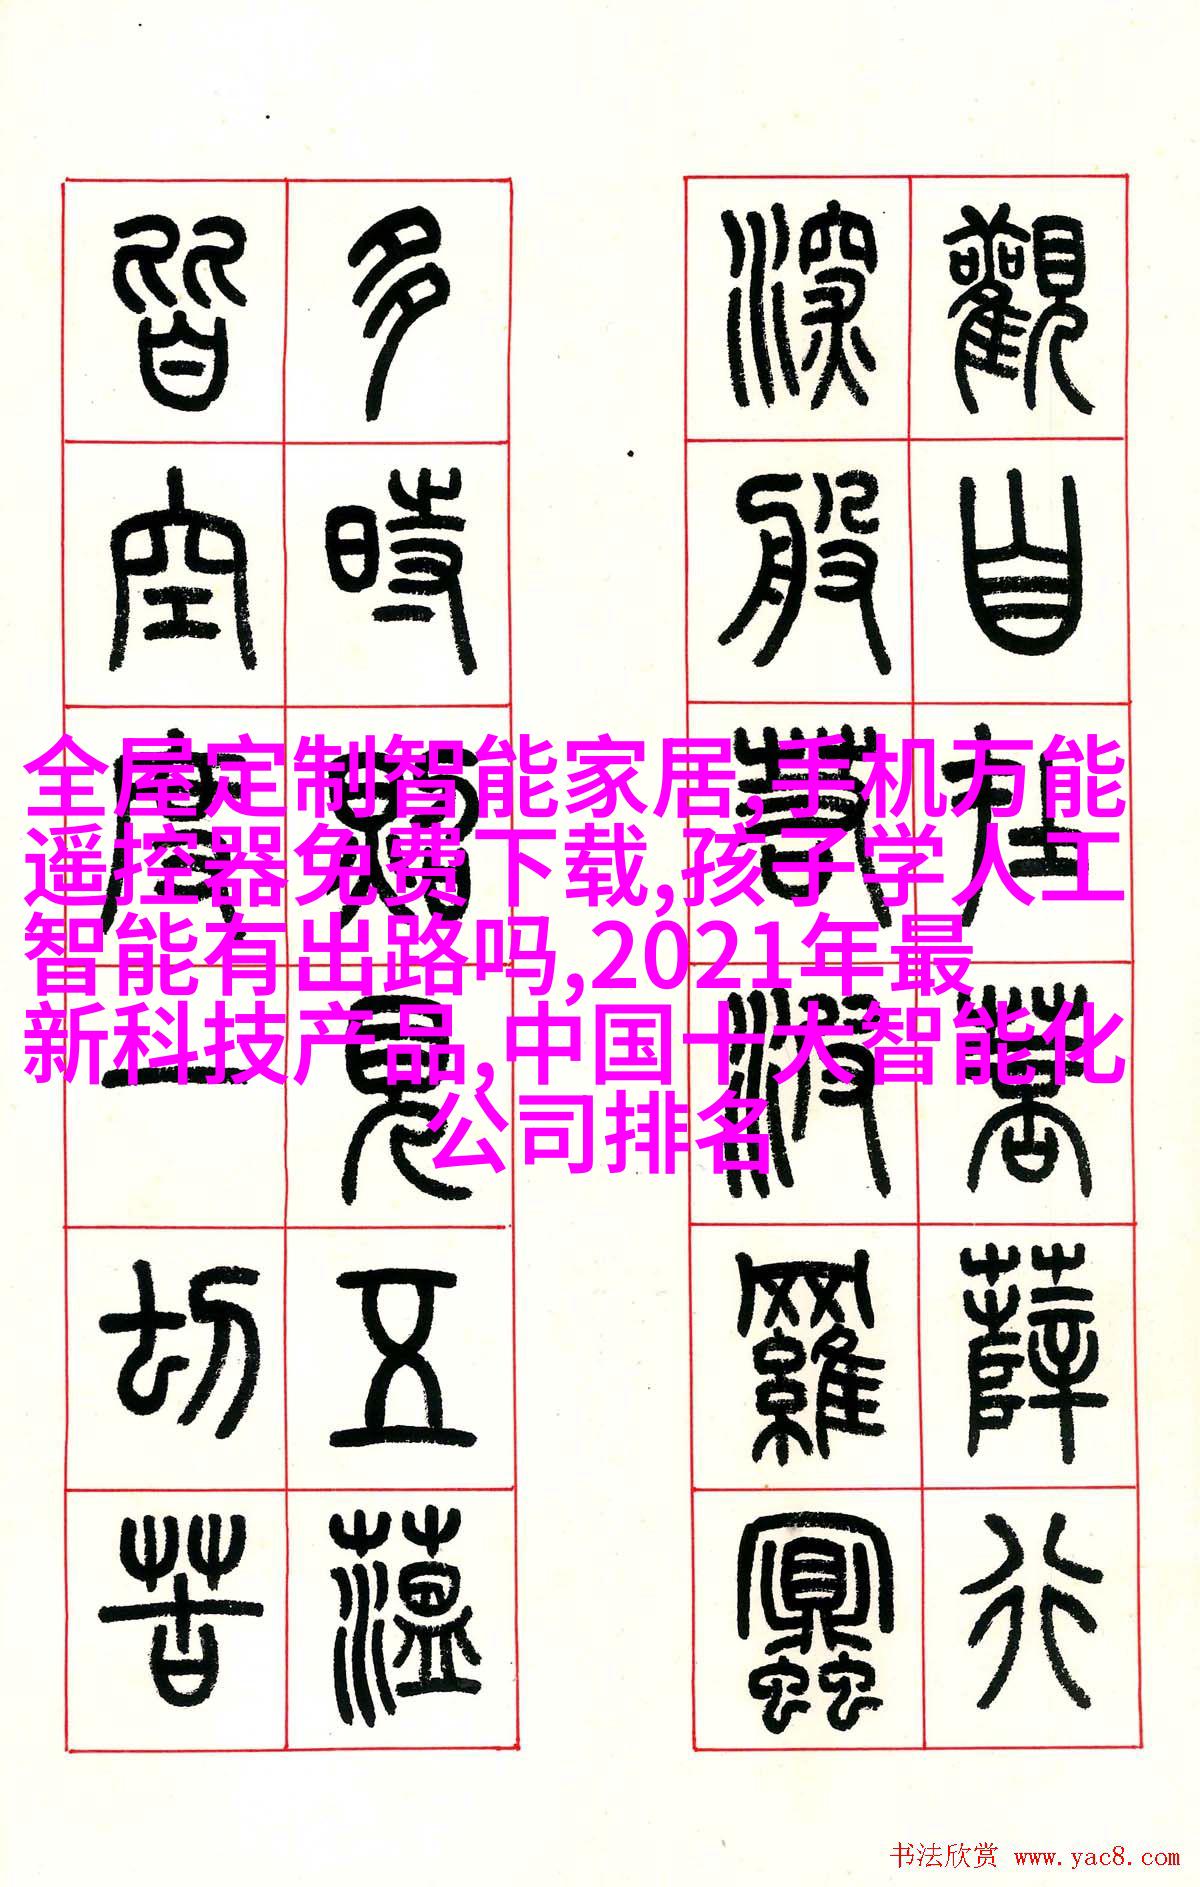 觀自在菩薩行
深般若波羅蜜
多時照見五蕰
皆空度一切苦
全屋定制智能家居,手机万能
遥控器免费下载,孩子学人工
智能有出路吗,2021年最
新科技产品,中国十大智能化
公司排名
书法欣赏 www.yac8.com